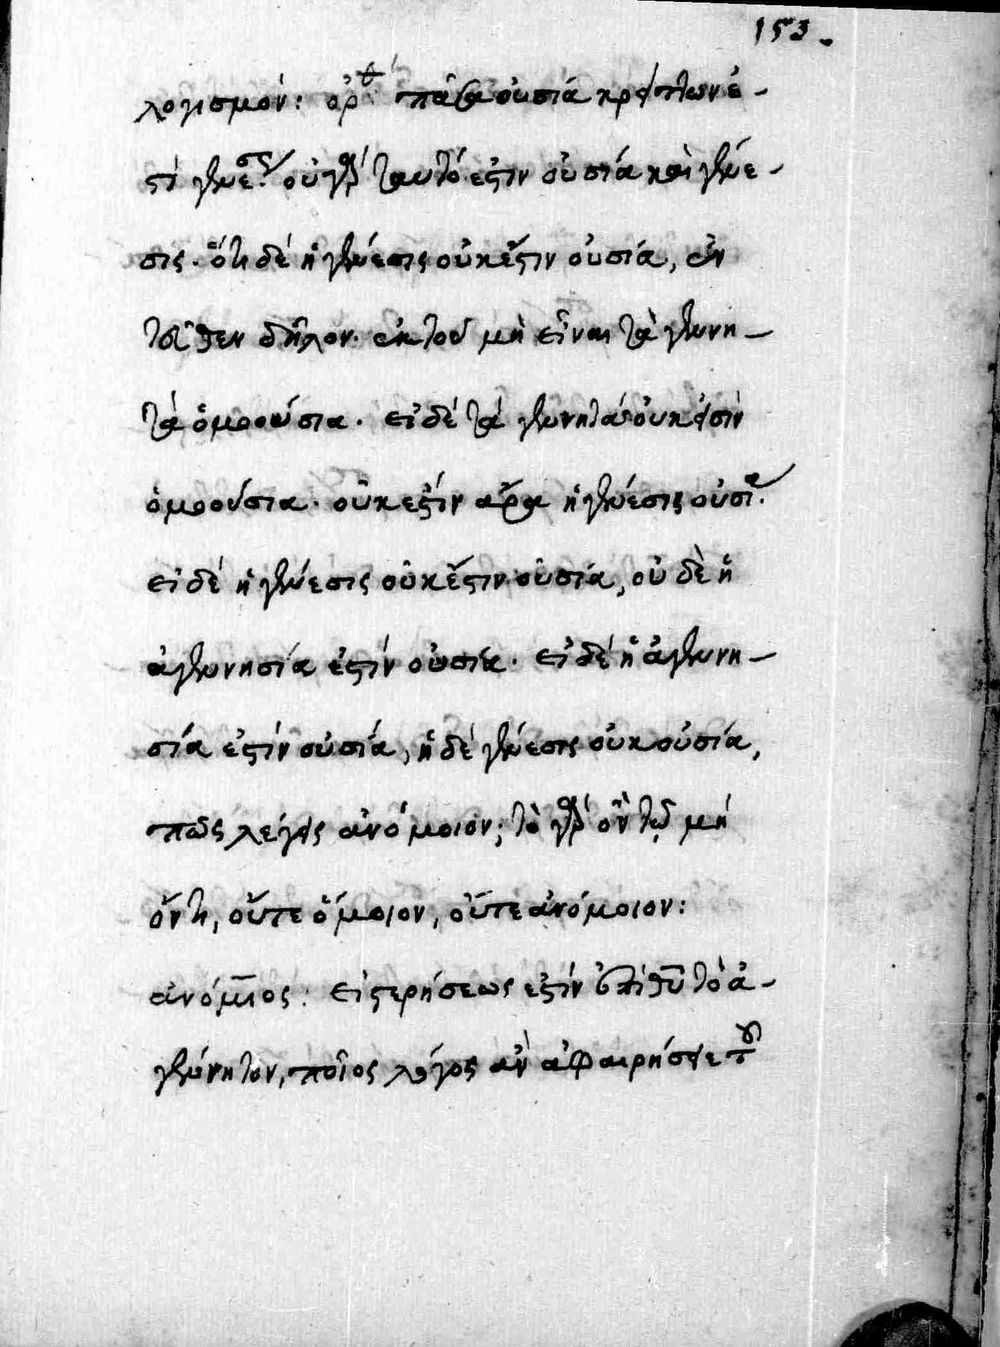 153.
λογισμόν: ὀρθ πᾶσα οὐσία κρείττων ἐ-
στὶ γενέσεως. οὐ γὰρ ταυτό ἐστιν οὐσία καὶ γένε-
σις. ὅτι δὲ ἡ γένεσις οὐκ ἔστιν οὐσία, ἐν
τεῦθεν δῆλον. ἐκ τοῦ μὴ εἶναι τὰ γεννη-
τὰ ὁμοούσια. εἰ δὲ τὰ γεννητὰ οὐκ εἰσὶν
ὁμοούσια. οὐκ ἐστὶν ἄρα ἡ γένεσις οὐσία.
εἰ δὲ ἡ γένεσις οὐκ ἔστιν οὐσία, οὐ δὲ ἡ
ἀγεννησία ἐστὶν οὐσία. εἰ δὲ ἡ ἀγεννη-
σία ἐστὶν οὐσία, ἡ δὲ γένεσις οὐκ οὐσία,
πῶς λέγεις ἀνόμοιον; τὸ γὰρ ὂν τῷ μὴ
ὄντι, οὔτε ὅμοιον, οὔτε ἀνόμοιον:
ἀνόμιος: εἰ στερήσεως ἐστὶν ἐπὶ θυ τὸ ἀ-
γέννητον, ποῖος λόγος ἀν ἀφαιρήσει τοῦ